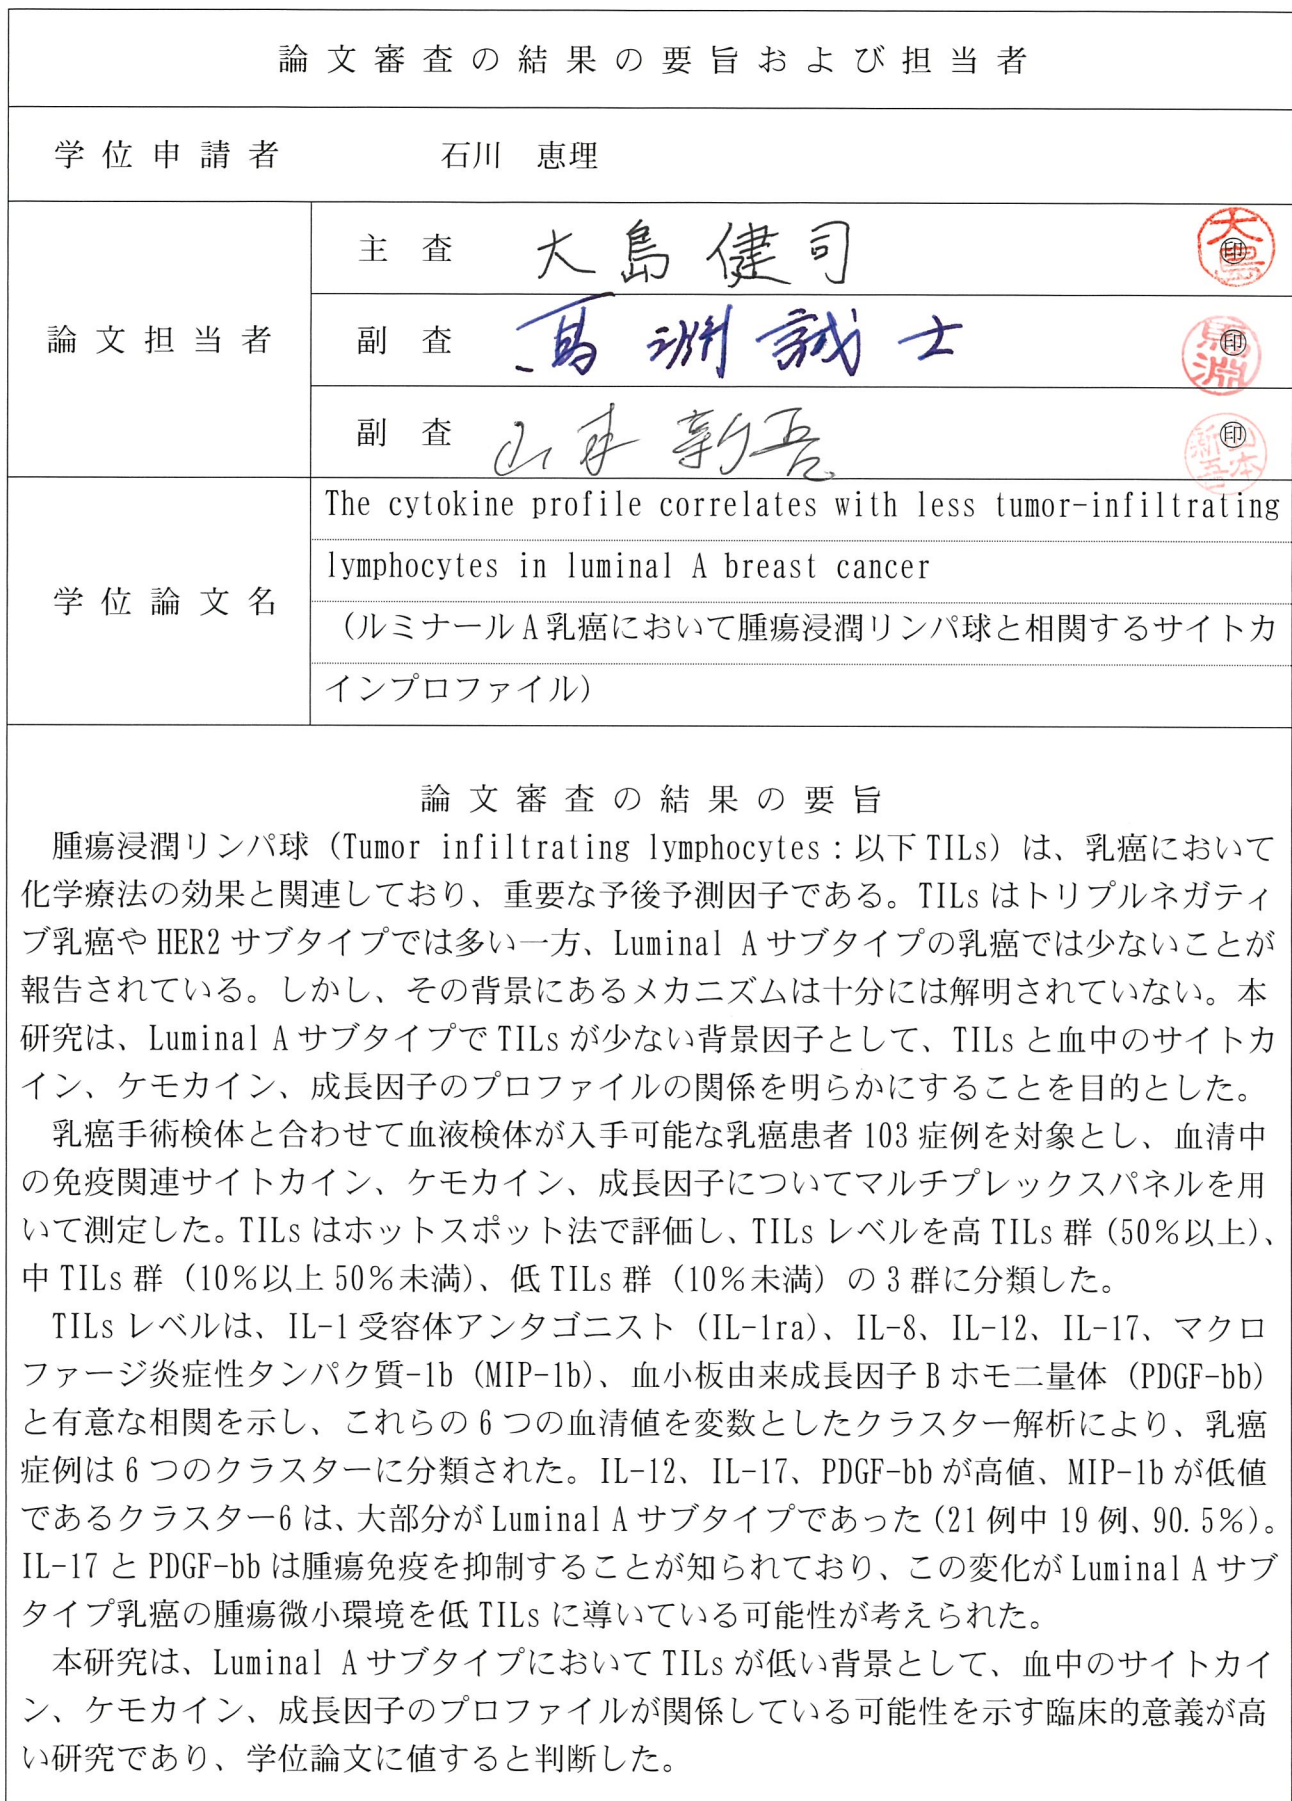 論文審査の結果の要旨および担当者
学位申請者 石川 恵理
論文担当者
主査 大島健司 ㊞
副査 馬淵誠士 ㊞
副査 山本新吾 ㊞
学位論文名
The cytokine profile correlates with less tumor-infiltrating
lymphocytes in luminal A breast cancer
（ルミナールA乳癌において腫瘍浸潤リンパ球と相関するサイトカ
インプロファイル）
論文審査の結果の要旨
腫瘍浸潤リンパ球（Tumor infiltrating lymphocytes：以下TILs）は、乳癌において
化学療法の効果と関連しており、重要な予後予測因子である。TILsはトリプルネガティ
ブ乳癌やHER2サブタイプでは多い一方、Luminal Aサブタイプの乳癌では少ないことが
報告されている。しかし、その背景にあるメカニズムは十分には解明されていない。本
研究は、Luminal AサブタイプでTILsが少ない背景因子として、TILsと血中のサイトカ
イン、ケモカイン、成長因子のプロファイルの関係を明らかにすることを目的とした。
乳癌手術検体と合わせて血液検体が入手可能な乳癌患者103症例を対象とし、血清中
の免疫関連サイトカイン、ケモカイン、成長因子についてマルチプレックスパネルを用
いて測定した。TILsはホットスポット法で評価し、TILsレベルを高TILs群（50％以上）、
中TILs群（10％以上50％未満）、低TILs群（10％未満）の3群に分類した。
TILsレベルは、IL-1受容体アンタゴニスト（IL-1ra）、IL-8、IL-12、IL-17、マクロ
ファージ炎症性タンパク質-1b（MIP-1b）、血小板由来成長因子Bホモ二量体（PDGF-bb）
と有意な相関を示し、これらの6つの血清値を変数としたクラスター解析により、乳癌
症例は6つのクラスターに分類された。IL-12、IL-17、PDGF-bbが高値、MIP-1bが低値
であるクラスター6は、大部分がLuminal Aサブタイプであった（21例中19例、90.5％）。
IL-17とPDGF-bbは腫瘍免疫を抑制することが知られており、この変化がLuminal Aサブ
タイプ乳癌の腫瘍微小環境を低TILsに導いている可能性が考えられた。
本研究は、Luminal AサブタイプにおいてTILsが低い背景として、血中のサイトカイ
ン、ケモカイン、成長因子のプロファイルが関係している可能性を示す臨床的意義が高
い研究であり、学位論文に値すると判断した。